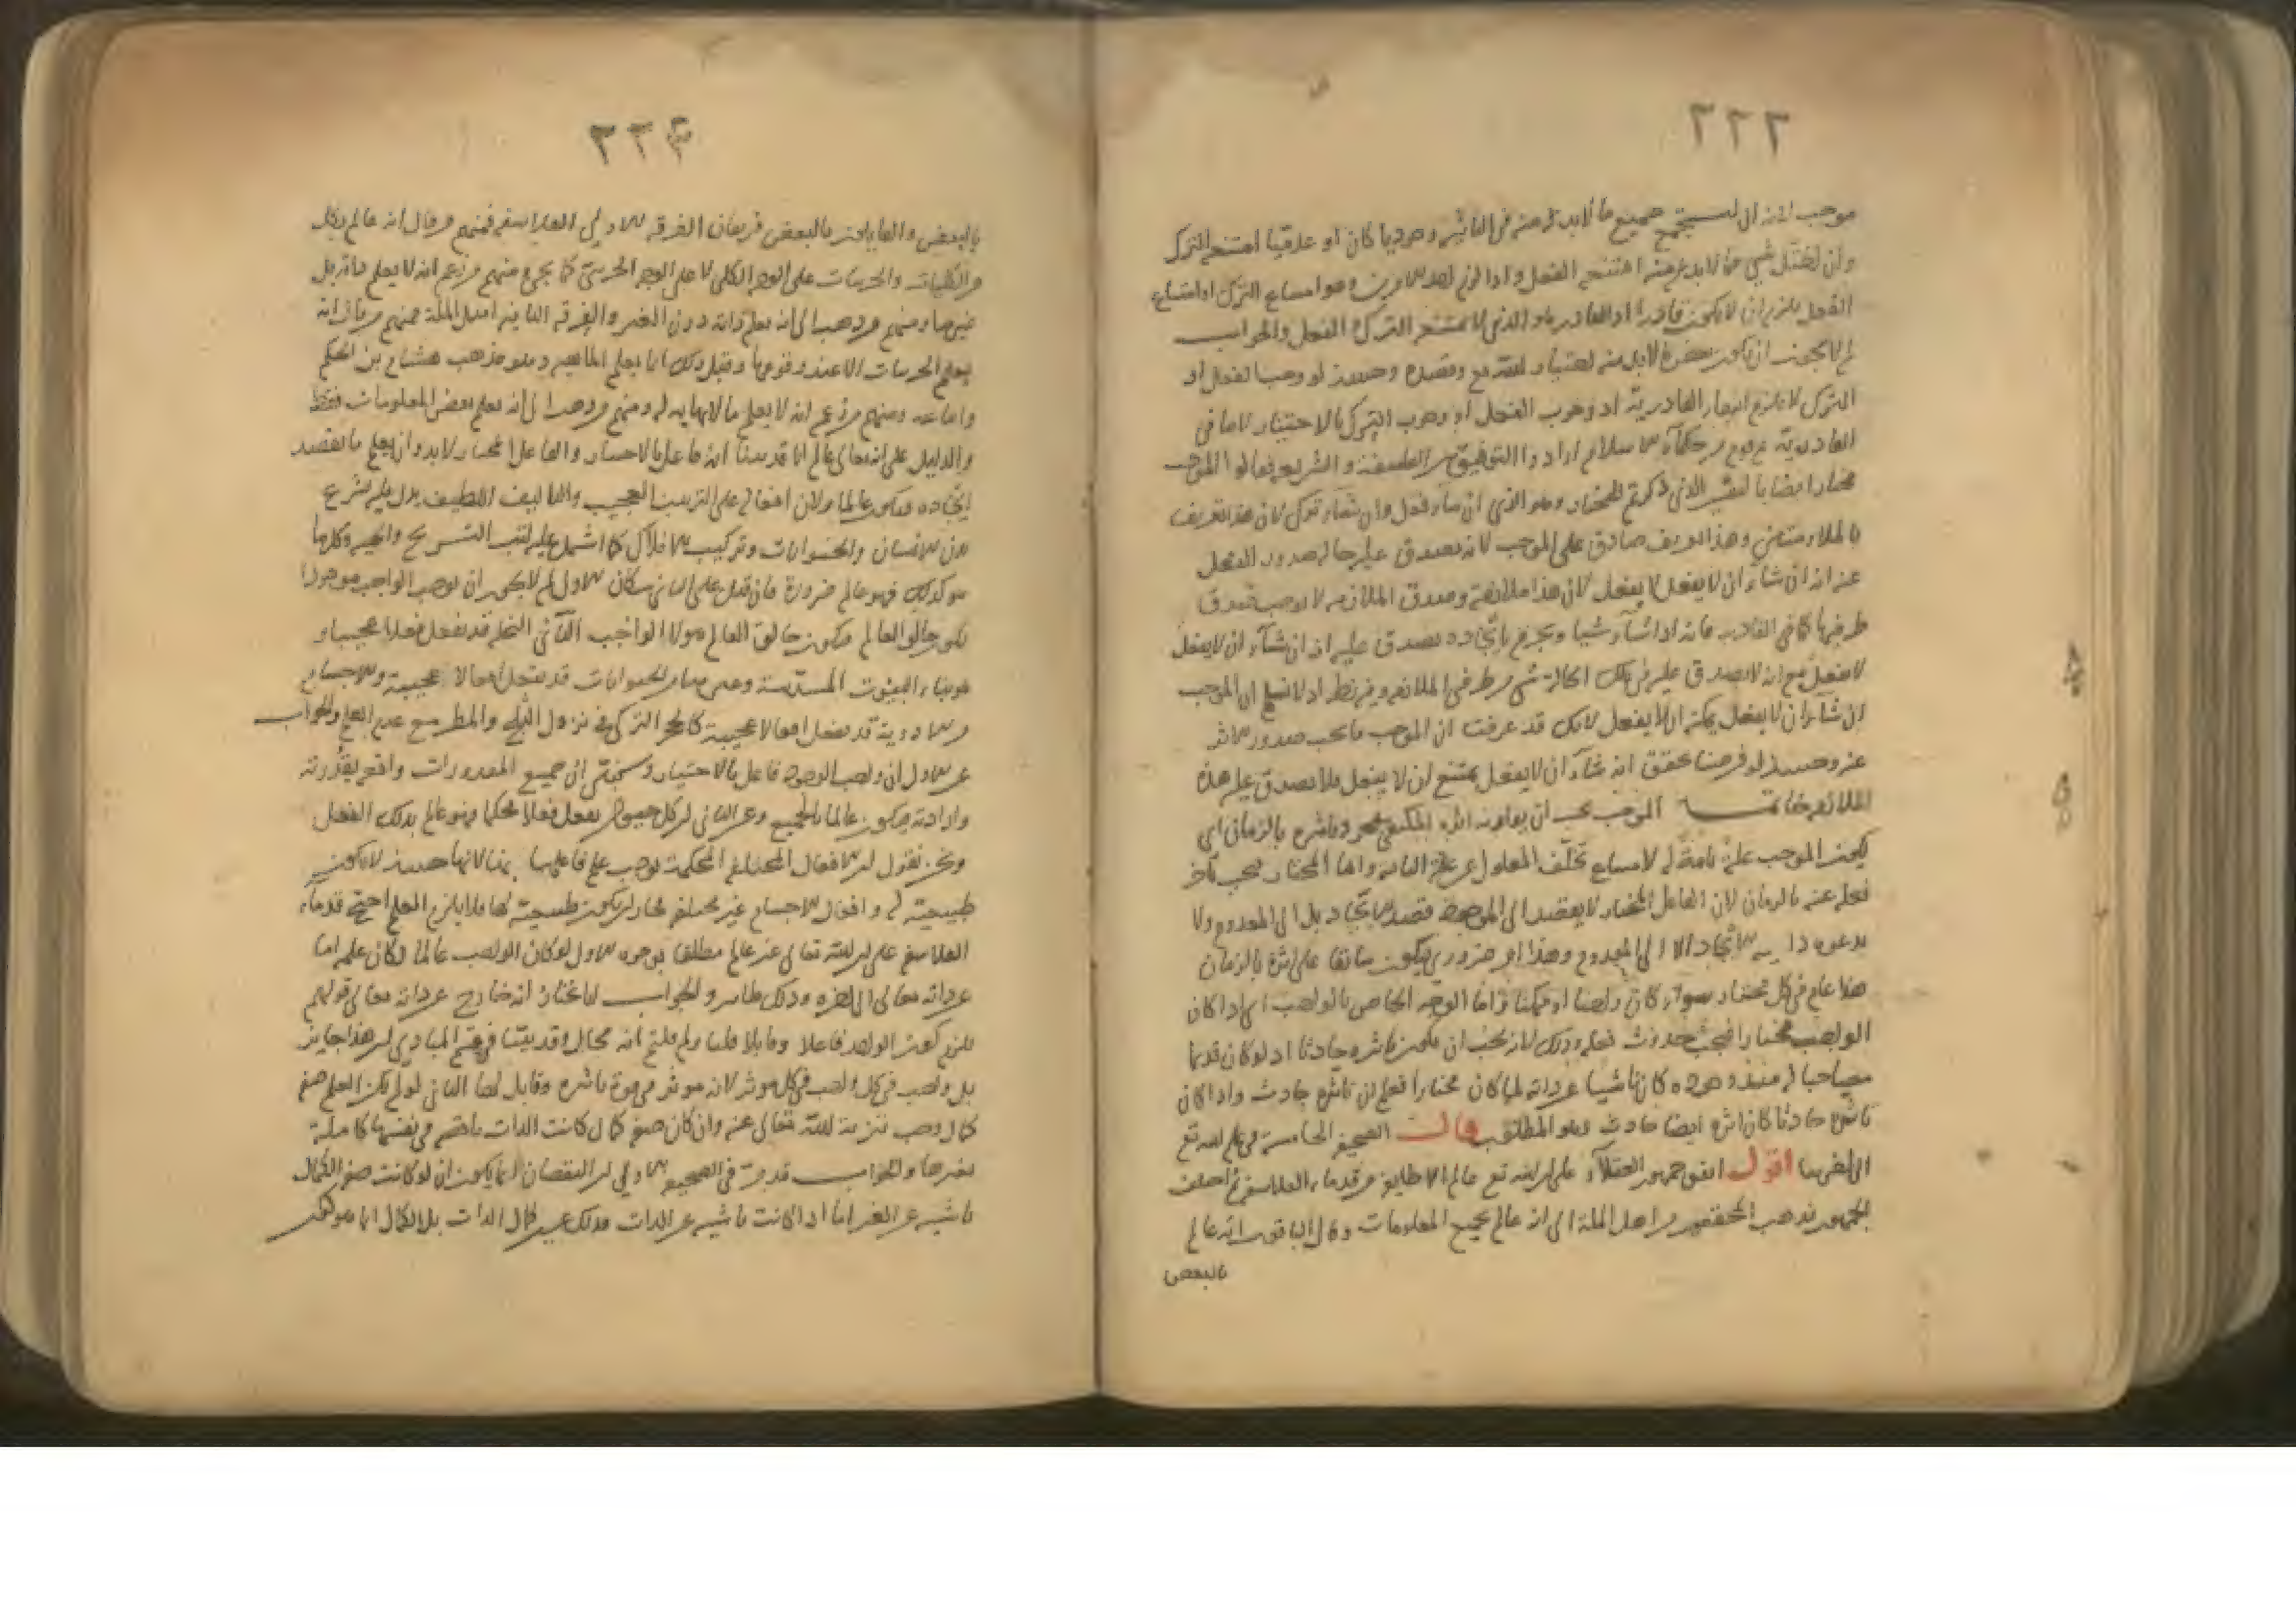 ٢٢٢
موجب لانه ان استجمع جميع ما لابد له منه فى التأثير وجوديا كان او عدميّا امتنع الترك
وان اختل شىء مما لابد منه امتنع الفعل واذا لزم احد الامرين وهو امتناع الترك او امتناع
الفعل يلزم ان لا يكون قادرا اذ القادر هو الذى لا يمتنع الترك الفعل والجواب
لم لا يجوز ان يكون بعض ما لابد منه اختيار الله تع وقصده وحينئذ لو وجب الفعل او
الترك لا يلزم انتفاء القادرية اذ وجوب الفعل او وجوب الترك بالاختيار لا ينافى
القادرية جمع من حكماء الاسلام ارادوا التوفيق بين الفلسفة والشريعة فقالوا الموجب
مختار ايضا بالتفسير الذى ذكرتم للمختار وهو الذى ان شاء فعل وان شاء ترك لان هذا التعريف
بالملازمتين وهذا التعريف صادق على الموجب لانه يصدق عليه حال صدور الفعل
عنه انه ان شاء ان لا يفعل لا يفعل لان هذا ملازمة وصدق الملازمة لا يوجب صدق
طرفيها كما فى القادر فانه اذا شاء شيئا وجزم باتجاده يصدق عليه انه ان شاء ان لا يفعل
لا يفعل مع انه لا يصدق عليه فى تلك الحالة شىء من طرفى الملازمة وفيه نظر اذ لا نسلم ان الموجب
ان شاء ان لا يفعل يمكنه ان لا يفعل لانك قد عرفت ان الموجب ما يجب صدور الاثر
عنه وحينئذ لو فرضنا تحقق انه شاء ان لا يفعل يمتنع ان لا يفعل فلا يصدق عليه هذه
الملازمة خاتمة الموجب يجب ان يقارنه اثره المكتفى بمجرد تاثيره بالزمان اى
يكون الموجب علة تامة له لامتناع تخلّف المعلول عن علته التامة واما المختار فيجب تأخر
فعله عنه بالزمان لان الفاعل المختار لا يقصد الى الموجود قصد الايجاد بل الى المعدوم ولا
يدعوه داعية الاتجاد الا الى المعدوم وهذا امر ضرورى فيكون سابقا على اثره بالزمان
هذا عام فى كل مختار سواء كان واجبا او ممكنا واما الوجه الخاص بالواجب اى اذا كان
الواجب مختارا فيجب حدوث فعله وذلك لانه يجب ان يكون تاثيره حادثا اذ لو كان قديما
مصاحبا له منذ وجوده كان ناشيا عن ذاته لما كان مختارا فعلم ان تاثيره حادث واذا كان
تاثيره حادثا كان اثره ايضا حادث وهو المطلوب قالـ الصحيفة الخامسة فى علم الله تع
الى اخرها اقول اتفق جمهور العقلاء على ان الله تع عالم الا طايفة من قدماء الفلاسفة ثم اختلف
الجمهور فذهب المحققون من اهل الملة الى انه عالم بجميع المعلومات وقال الباقون انه عالم
بالبعض
٢٢٤
بالبعض والقايلون بالبعض فريقان الفرقة الاولى الفلاسفة فمنهم من قال انه عالم بكل
من الكليات والجزييات على الوجه الكلى لا على الوجه الجزئى كما يجئ ومنهم من زعم انه لا يعلم ذاته بل
غيرها ومنهم من ذهب الى انه يعلم ذاته دون الغير والفرقة الثانية اهل الملة فمنهم من قال انه
يعلم الجزييات الا عند وقوعها وقبل ذلك انما يعلم الماهية وهو مذهب هشام بن الحكم
واتباعه ومنهم من زعم انه لا يعلم ما لا نهاية له ومنهم من ذهب الى انه يعلم بعض المعلومات فقط
والدليل على انه تعالى عالم انا قد بينا انه فاعل بالاختيار والفاعل المختار لابد وان يعلم ما يقصد
ايجاده فيكون عالما ولان افعاله على الترتيب العجيب والتاليف اللطيف يدل عليه تشريح
بدن الانسان والحيوانات وتركيب الافلاك كما اشتمل عليه كتب التشريح والهيئة وكل ما
هو كذلك فهو عالم ضرورة فان قيل على الثانى سؤالان الاول لم لا يجوز ان يوجب الواجب موجودا
يكون خالق العالم فيكون خالق العالم هو لا الواجب الثانى النحل قد يفعل فعلا عجيبا و
هو بناء البيوت المسدسة وبعض ساير الحيوانات قد يفعل افعالا عجيبة والاجسام
والادوية قد يفعل افعالا عجيبة كالحجر التركى فى نزول الثلج والمطر مع عدم العلم والجواب
عن الاول ان واجب الوجود فاعل بالاختيار وسنبين ان جميع المقدورات واقع بقدرته
وارادته فيكون عالما بالجميع وعن الثانى ان كل حيوان يفعل فعلا محكما فهو عالم بذلك الفعل
ونحن نقول ان الافعال المختلفة المحكمة توجب علم فاعلها بها لانها حينئذ لا يكون
طبيعية له وافعال الاجسام غير مختلفة فجاز ان يكون طبيعية لها فلا يلزم العلم احتج قدماء
الفلاسفة على ان الله تعالى غير عالم مطلقا بوجوه الاول لو كان الواجب عالما لكان علمه اما
عن ذاته تعالى الى اخره وذلك ظاهر والجواب انا نختار انه خارج عن ذاته تعالى قولهم
يلزم كون الواحد فاعلا وقابلا قلنا ولم قلتم انه محال وقد بيّنّا فى قسم المبادى ان هذا جايز
بل واجب فى كل واجب فى كل موثر لانه موثر فى قوة تاثيره وقابل لها الثانى لو لم يكن العلم صفة
كمال وجب تنزيه الله تعالى عنه وان كان صفة كمال كانت الذات ناقصة فى نفسها كاملة
بغيرها والجواب قد مر فى الصحيفة الاولى ان النقصان انما يكون ان لو كانت صفة الكمال
ناشية عن الغير اما اذا كانت ناشية عن الذات فذلك عين كمال الذات بل الكمال انما هو ذلك